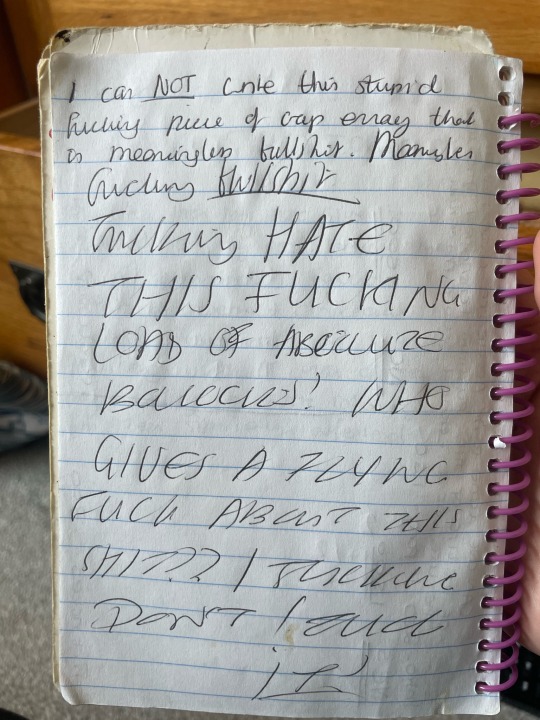 I can NOT write this stupid
fucking piece of crap essay that
is meaningless bullshit. Meaningless
fucking bullshit
Fucking HATE
THIS FUCKING
LOAD OF ABSOLUTE
BOLLOCKS! WHO
GIVES A FLYING
FUCK ABOUT THIS
SHIT?? I FUCKING
DON'T! FUCK
IT!